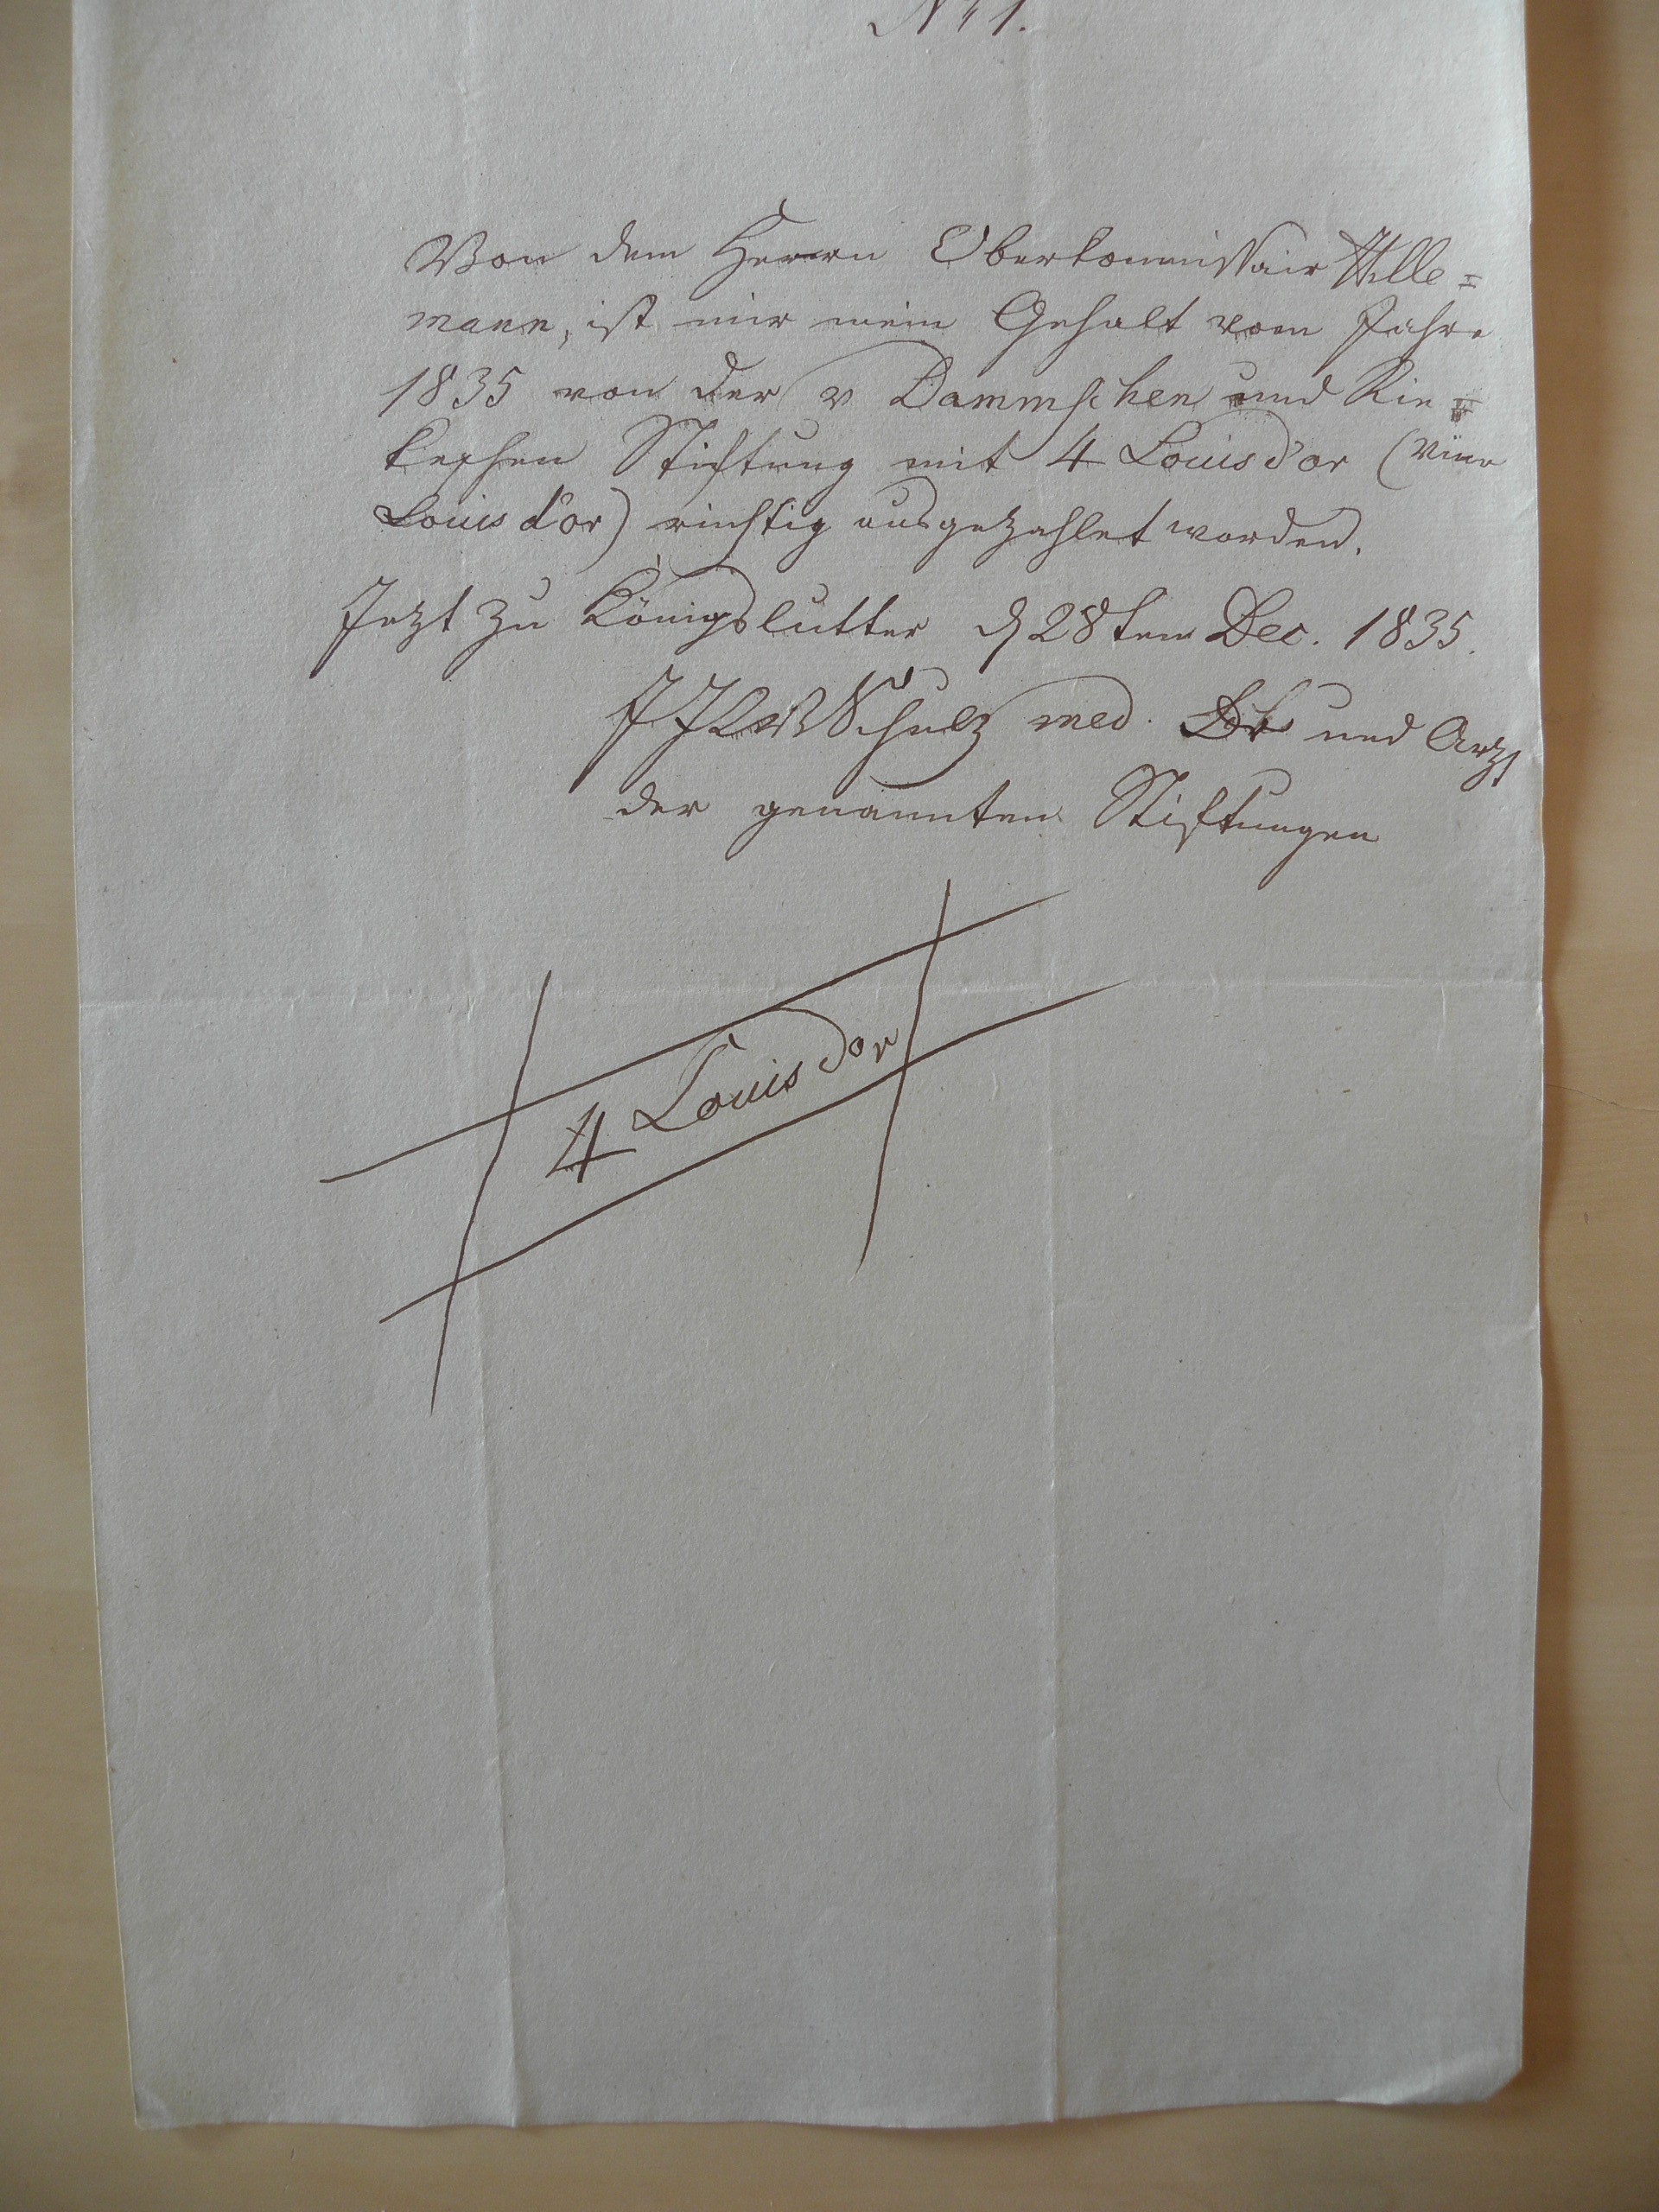 № 1.
Von dem Herrn Oberkommissair Wille=
mann, ist mir mein Gehalt vom Jahre
1835 von der v Dammschen und Rie=
keschen Stiftung mit 4 Louisd'or (vier
Louis d'or) richtig ausgezahlet worden.
Jezt zu Königslutter d 28ten Dec. 1835.
Schulz med. Dr und Arzt
der genannten Stiftungen
4 Louisdor